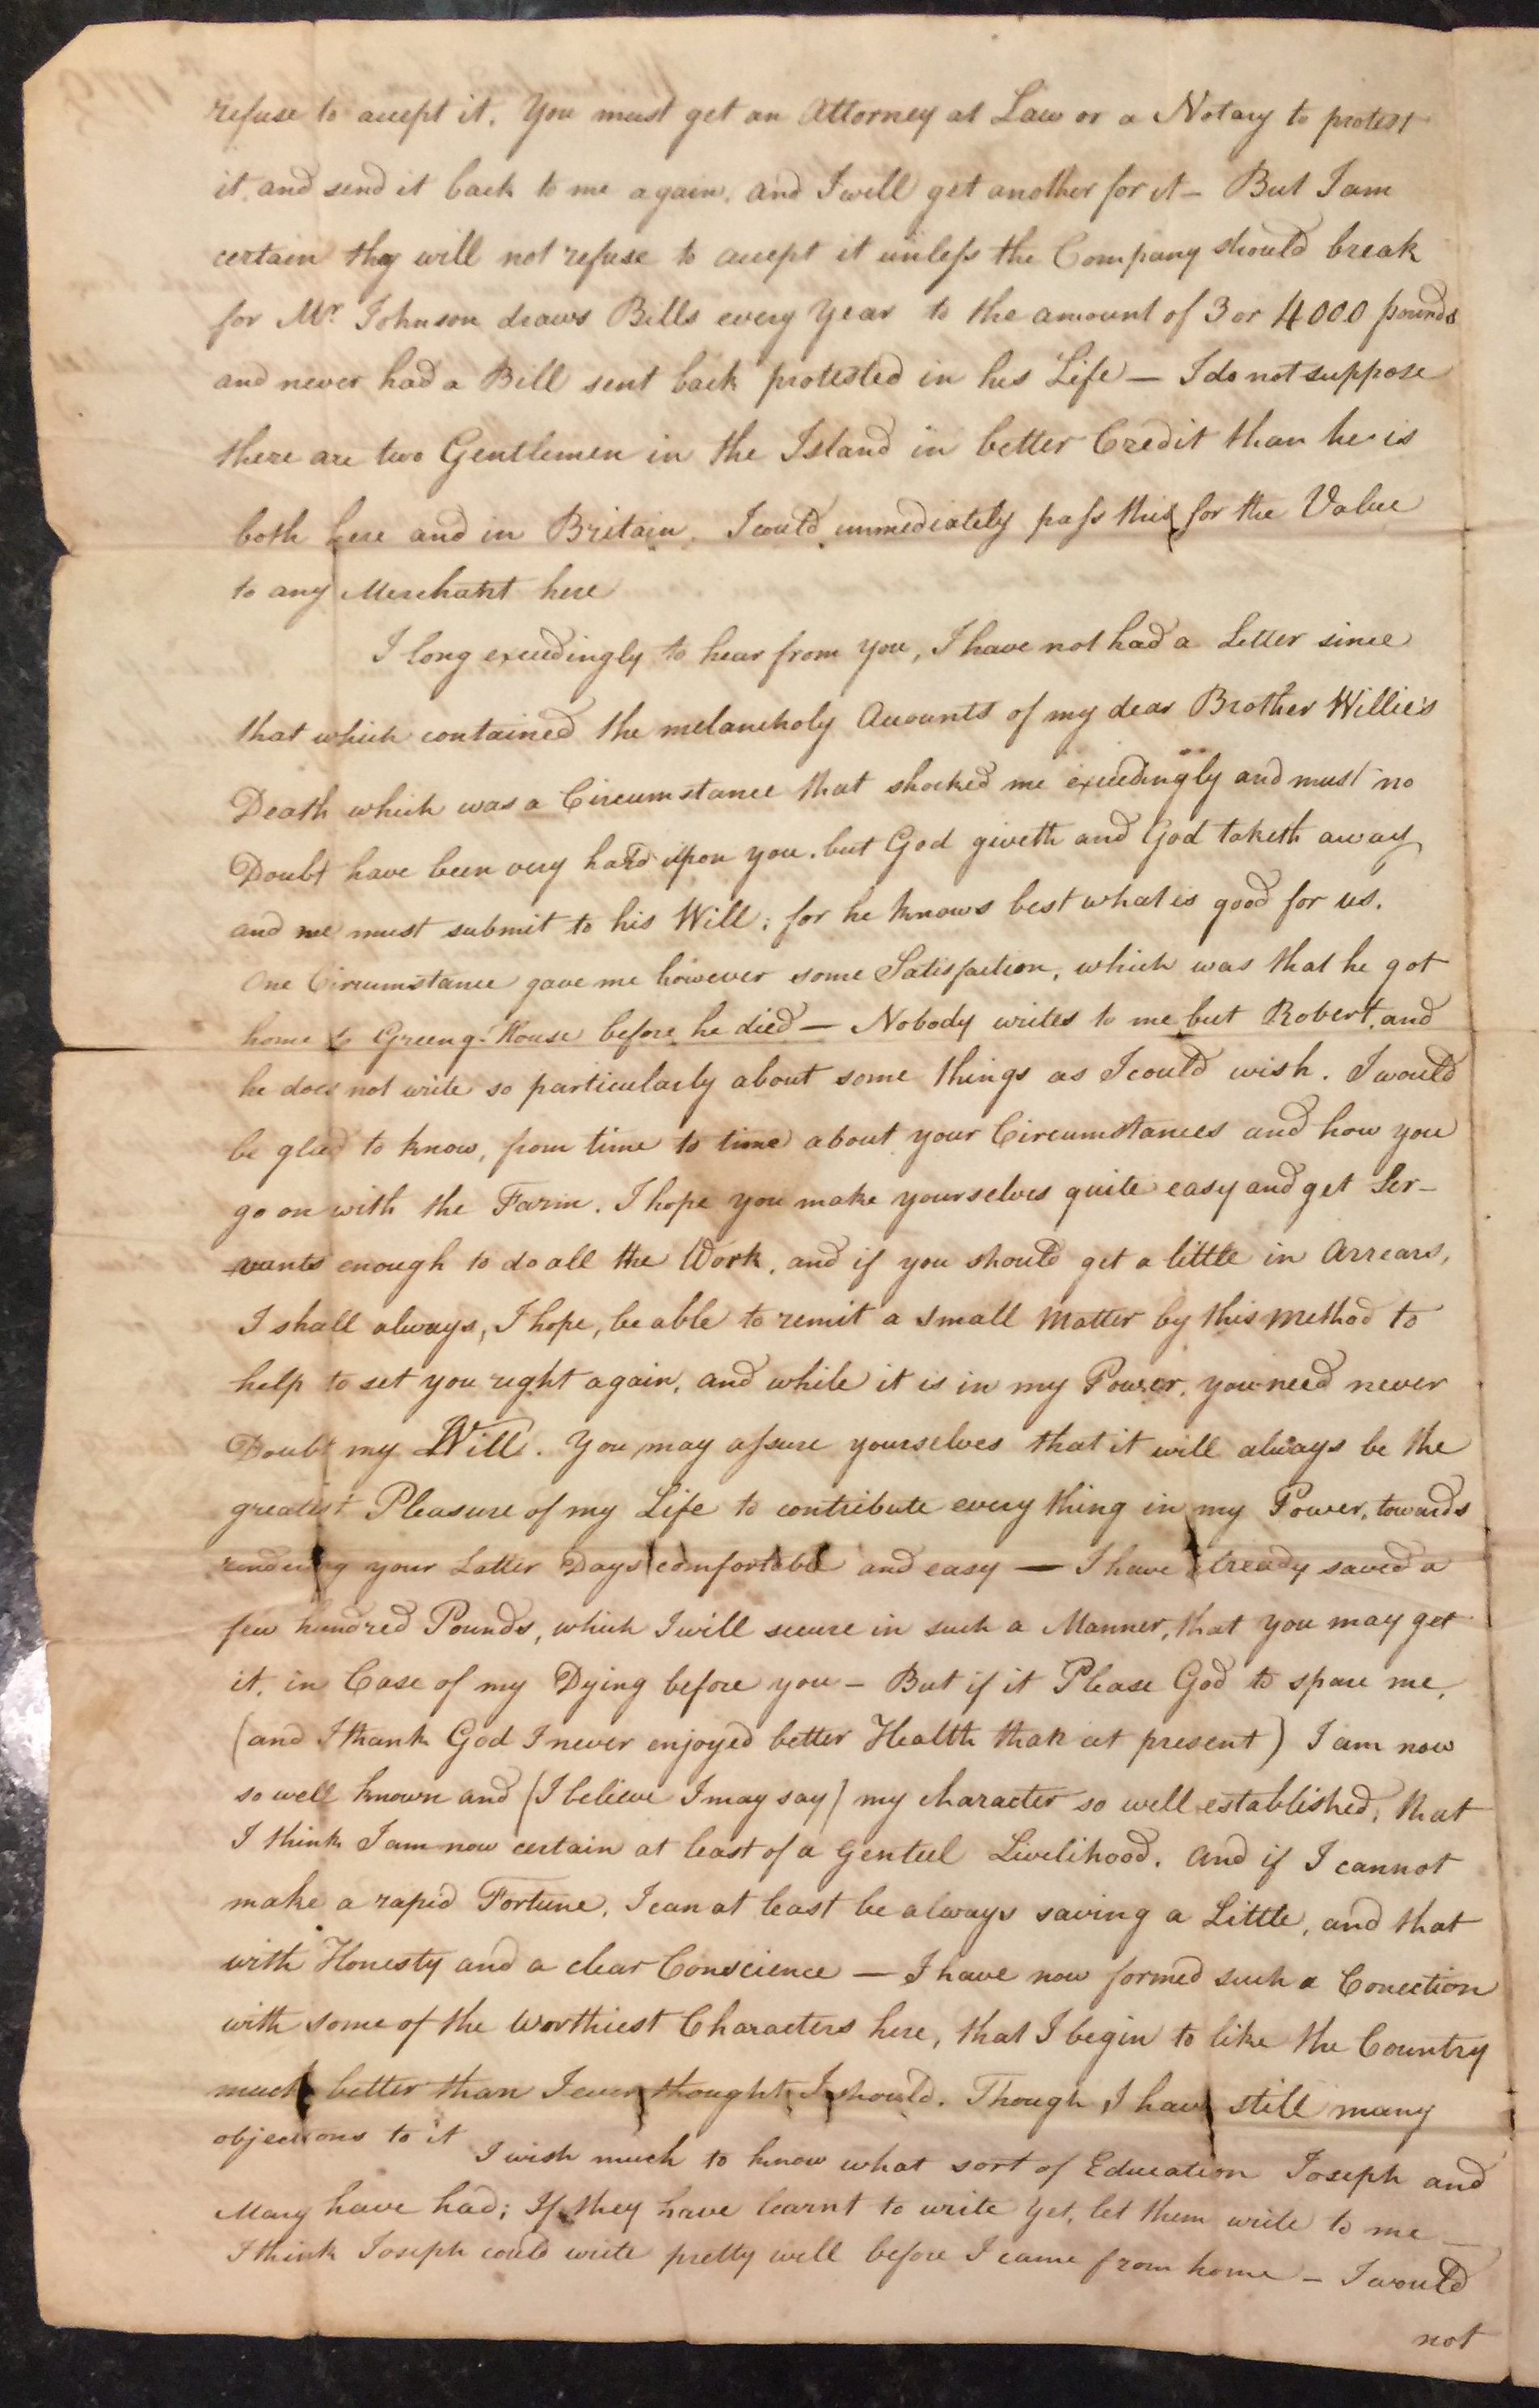 refuse to accept it. You must get an Attorney at Law or a Notary to protest
it, and send it back to me again, and I will get another for it – But I am
certain they will not refuse to accept it unleſs the Company should break
for Mr. Johnson draws Bills every Year to the amount of 3 or 4000 pounds
and never had a Bill sent back protested in his Life — I do not suppose
there are two Gentlemen in the Island in better Credit than he is
both here and in Britain. I could immediately paſs this for the Value
to any Merchant here
I long exceedingly to hear from you, I have not had a Letter since
that which contained the melancholy Accounts of my dear Brother Willie's
Death which was a Circumstance that shocked me exceedingly and must no
Doubt have been very hard upon you. but God giveth and God taketh away
and we must submit to his Will; for he knows best what is good for us.
One Circumstance gave me however some Satisfaction, which was that he got
home to House before he died — Nobody writes to me but Robert, and
he does not write so particularly about some things as I could wish. I would
be glad to know, from time to time about your Circumstances and how you
go on with the Farm. I hope you make yourselves quite easy and get Ser–
–vants enough to do all the Work, and if you should get a little in Arrears,
I shall always, I hope, be able to remit a small Matter by this Method to
help to set you right again, and while it is in my Power, you need never
Doubt my Will. You may aſsure yourselves that it will always be the
greatest Pleasure of my Life to contribute every thing in my Power, towards
rendering your Latter Days comfortable and easy — I have already saved a
few hundred Pounds, which I will secure in such a Manner, that you may get
it, in Case of my Dying before you – But if it Please God to spare me,
(and I thank God I never enjoyed better Health than at present) I am now
so well known and (I believe I may say) my character so well established, that
I think I am now certain at least of a Genteel Livelihood. And if I cannot
make a rapid Fortune, I can at least be always saving a Little, and that
with Honesty and a clear Conscience — I have now formed such a Conection
with some of the Worthiest Characters here, that I begin to like the Country
much better than I ever thought I should. Though I have still many
objections to it
I wish much to know what sort of Education Joseph and
Mary have had; If they have learnt to write yet, let them write to me —
I think Joseph could write pretty well before I came from home – I would
not